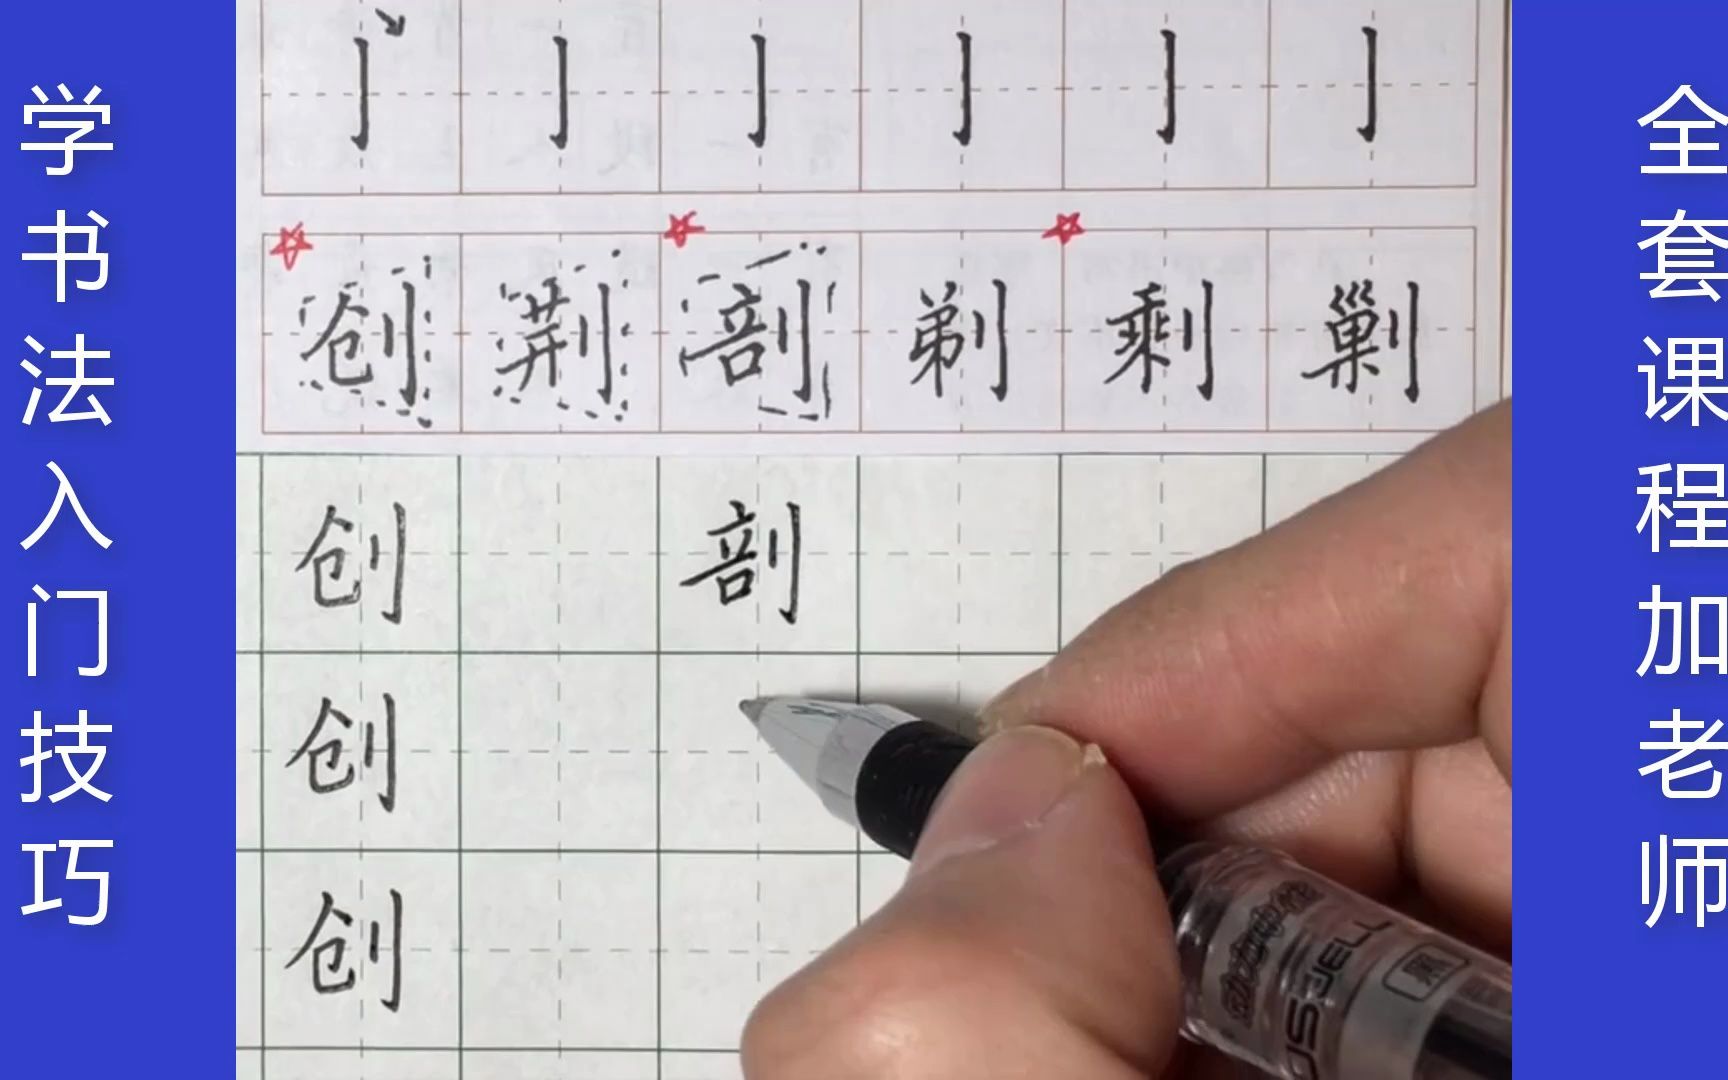 学书法入门技巧
全套课程加老师
亅 亅 亅 亅 亅 亅
创 荆 剖 剃 剩 剿
创 剖
创
创